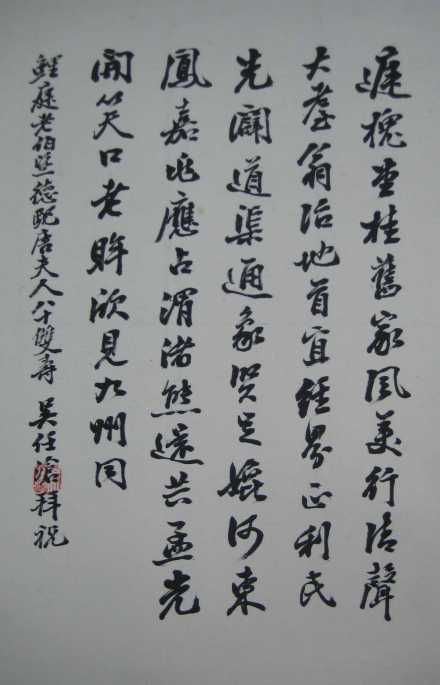 庭槐堂桂舊家風美行聲
大耋翁治地首宜經界正利民
先闢道渠通象賢足媲河東
鳳嘉兆應占渭渚熊還共孟光
開笑口老眸欣見九州同
鯉庭老伯暨德配唐夫人八十雙壽 吳任滄拜祝